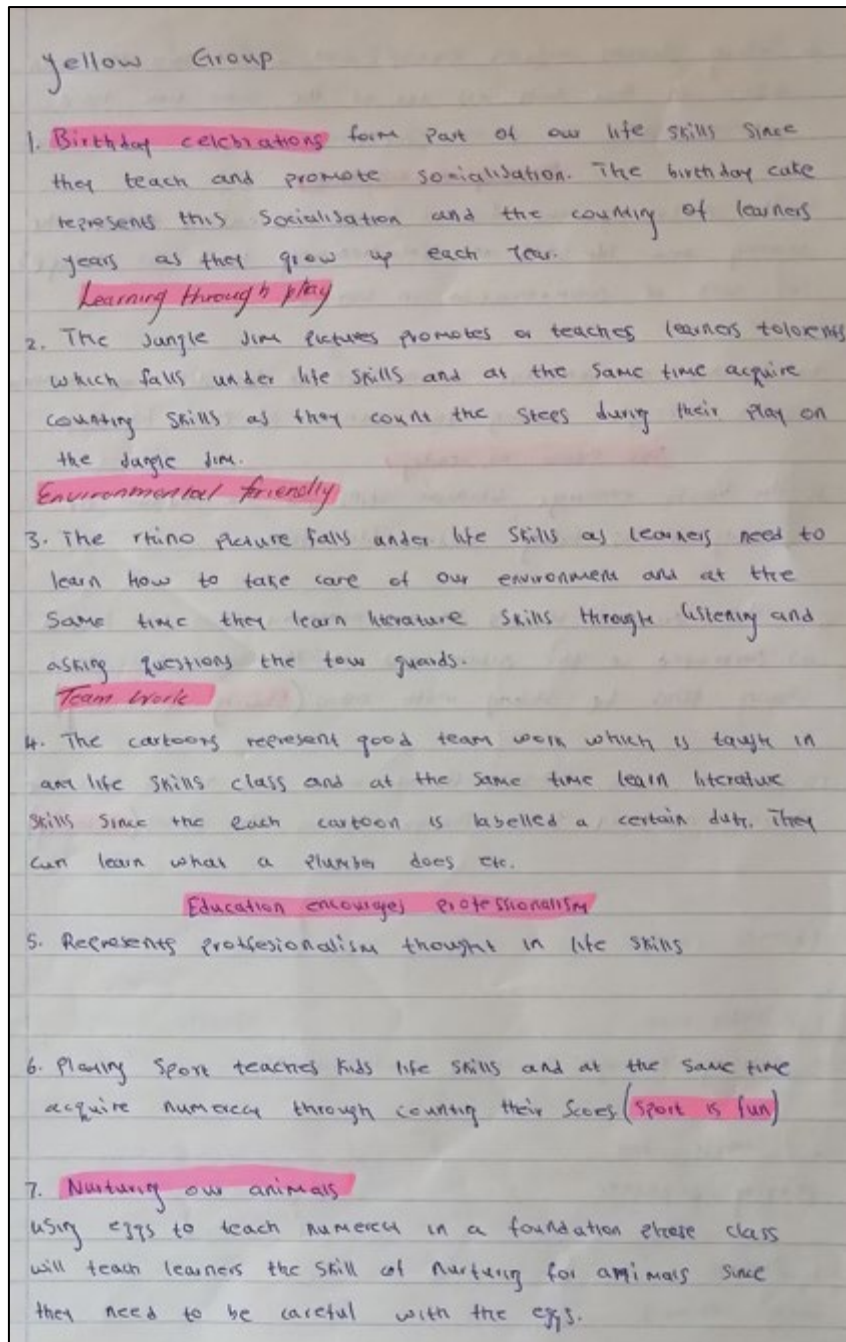 Yellow Group
1. Birthday celebrations form part of our life skills since
they teach and promote socialisation. The birthday cake
represents this socialisation and the counting of learners
years as they grow up each year.
Learning through play
2. The Jungle Jim pictures promotes or teaches learners tolorents
which falls under life skills and at the same time acquire
counting skills as they count the stees during their play on
the Jungle Jim.
Environmental friendly
3. The rhino picture falls under life skills as learners need to
learn how to take care of our environment and at the
same time they learn literature skills through listening and
asking questions the tow guards.
Team Work
4. The cartoons represent good team work which is taugh in
life skills class and at the same time learn literature
skills since the each cartoon is labelled a certain duty. They
can learn what a plumber does etc.
Education encourges professionalism
5. Represents protfesionalism thought in life skills
6. Playing sport teaches kids life skills and at the same time
acquire numeracy through counting their scores (sport is fun)
7. Nurturing our animals
using eggs to teach numeracy in a foundation phase class
will teach learners the skill of nurturing for animals since
they need to be careful with the eggs.